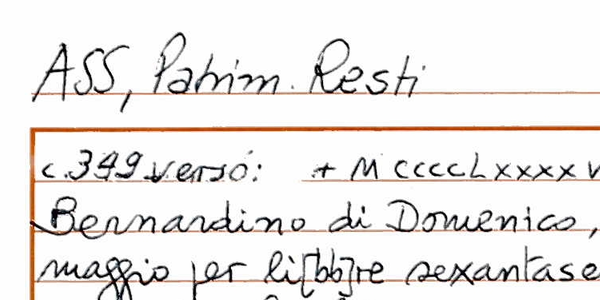 ASS, Patrim. Resti
c. 399 verso: + MCCCCLXXXXV
Bernardino di Domenico,
maggio per li[bb]re sexantase